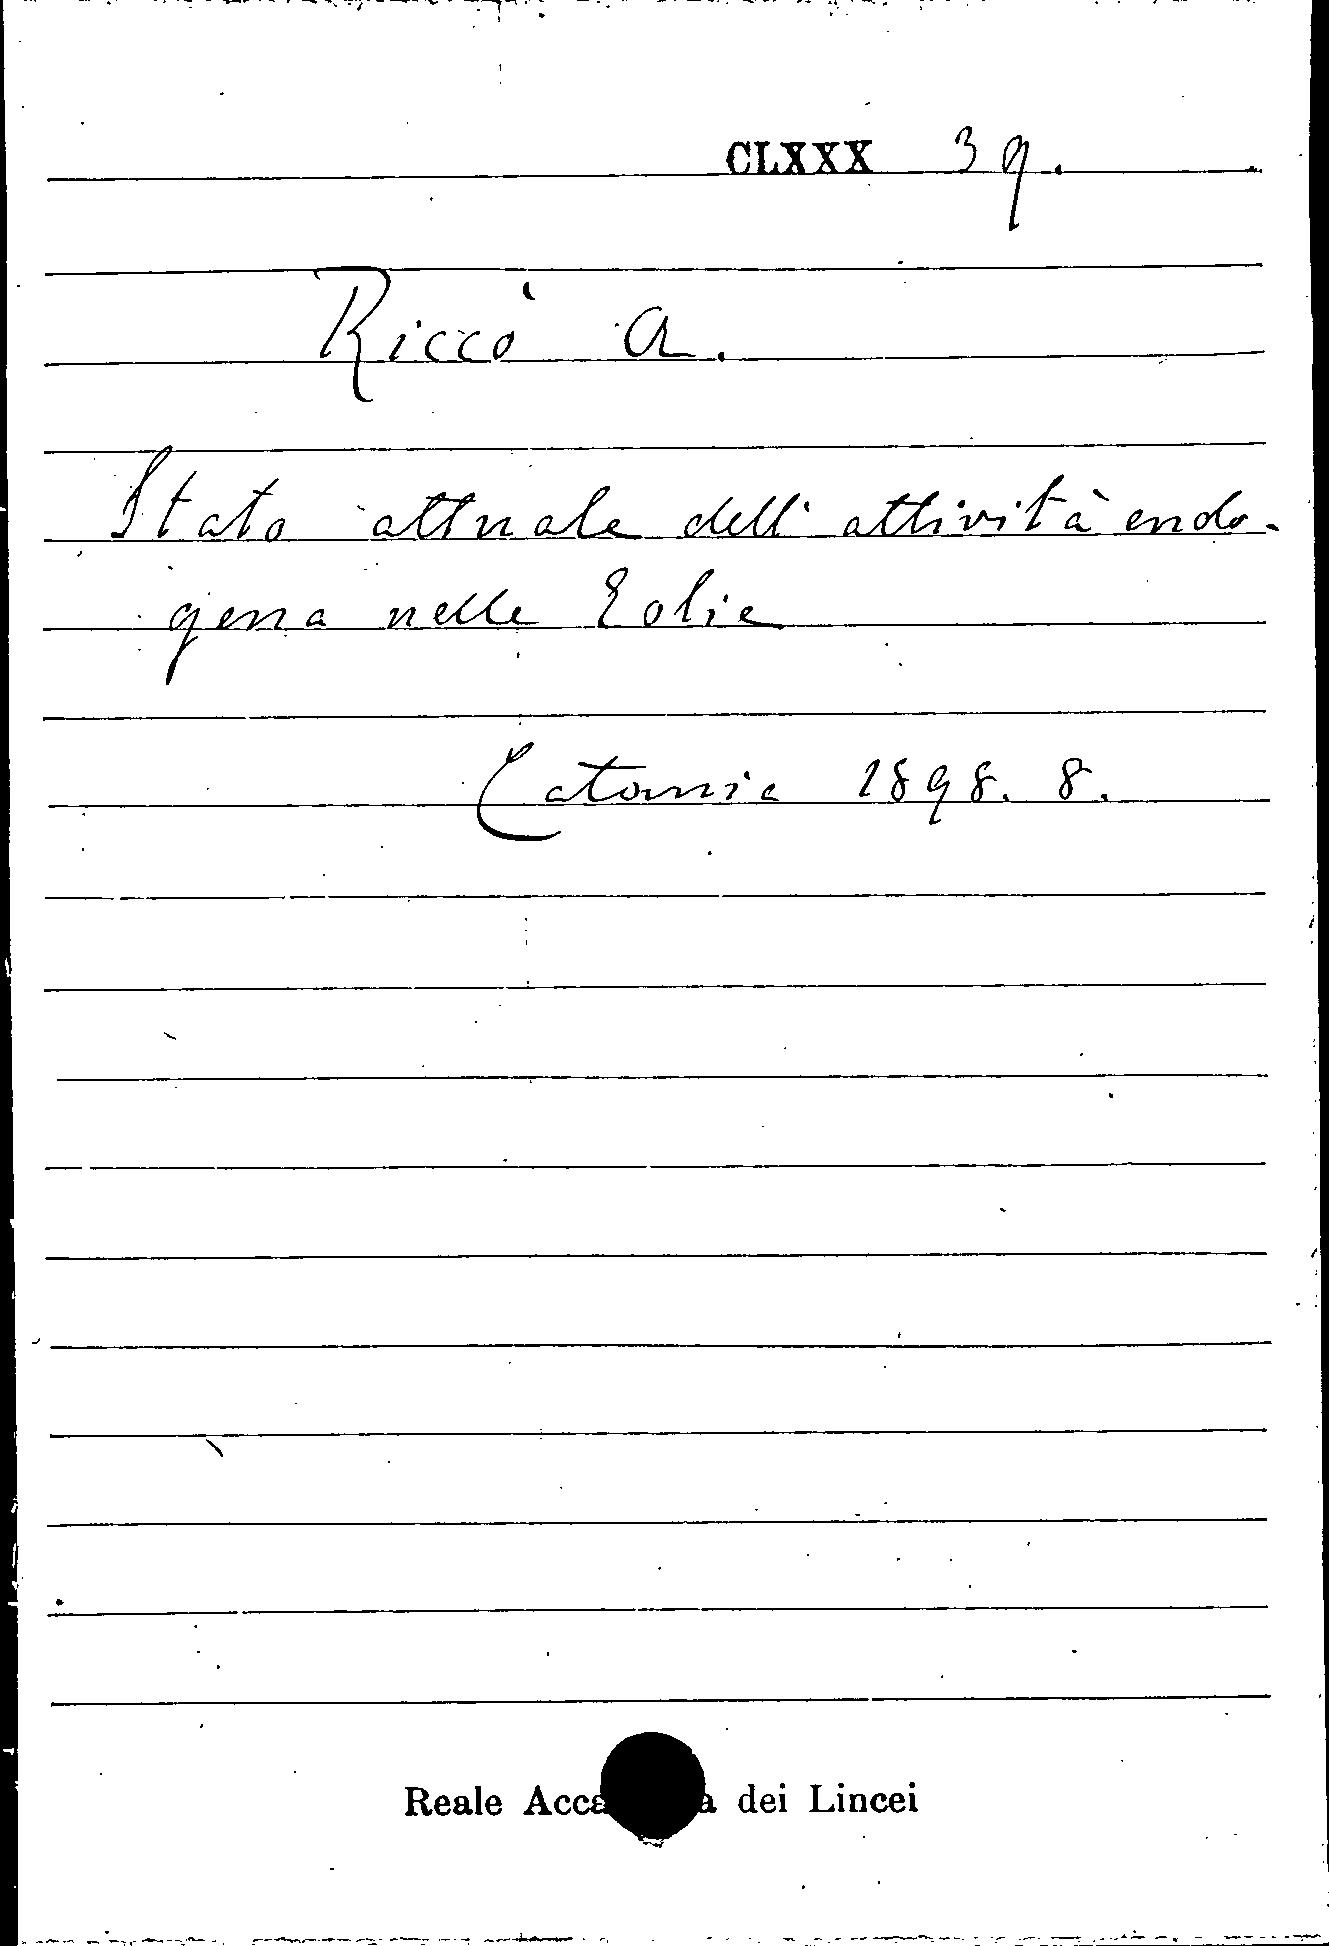 CLXXX 39.
Riccò A.
Stato attuale dell'attività endo-
gena nelle Eolie
Catania 1898. 8.
Reale Acca a dei Lincei